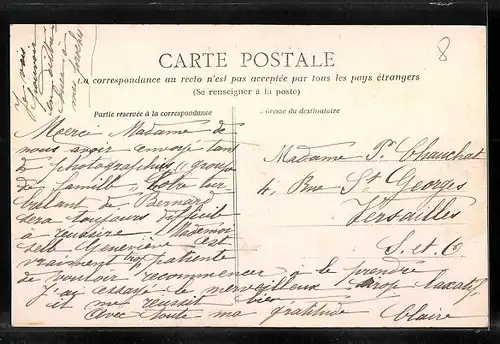 CARTE POSTALE
La correspondance au recto n'est pas acceptée par tous les pays étrangers
(Se renseigner à la poste)
Partie réservée à la correspondance
Adresse du destinataire
8
Je vais
pouvoir
Merci Madame de
nous avoir envoyé tant
de photographies, groupe
de famille. Votre tur-
bulent de Bernard
sera toujours difficile
à réussire. Mademoi-
selle Geneviève est
vraiment trop patiente
de vouloir recommencer à le prendre
J'ai essayé le merveilleux sirop laxatif
il me réussit bien
Avec toute ma gratitude Claire
Madame P. Chauchat
4, Rue St Georges
Versailles
S. et O